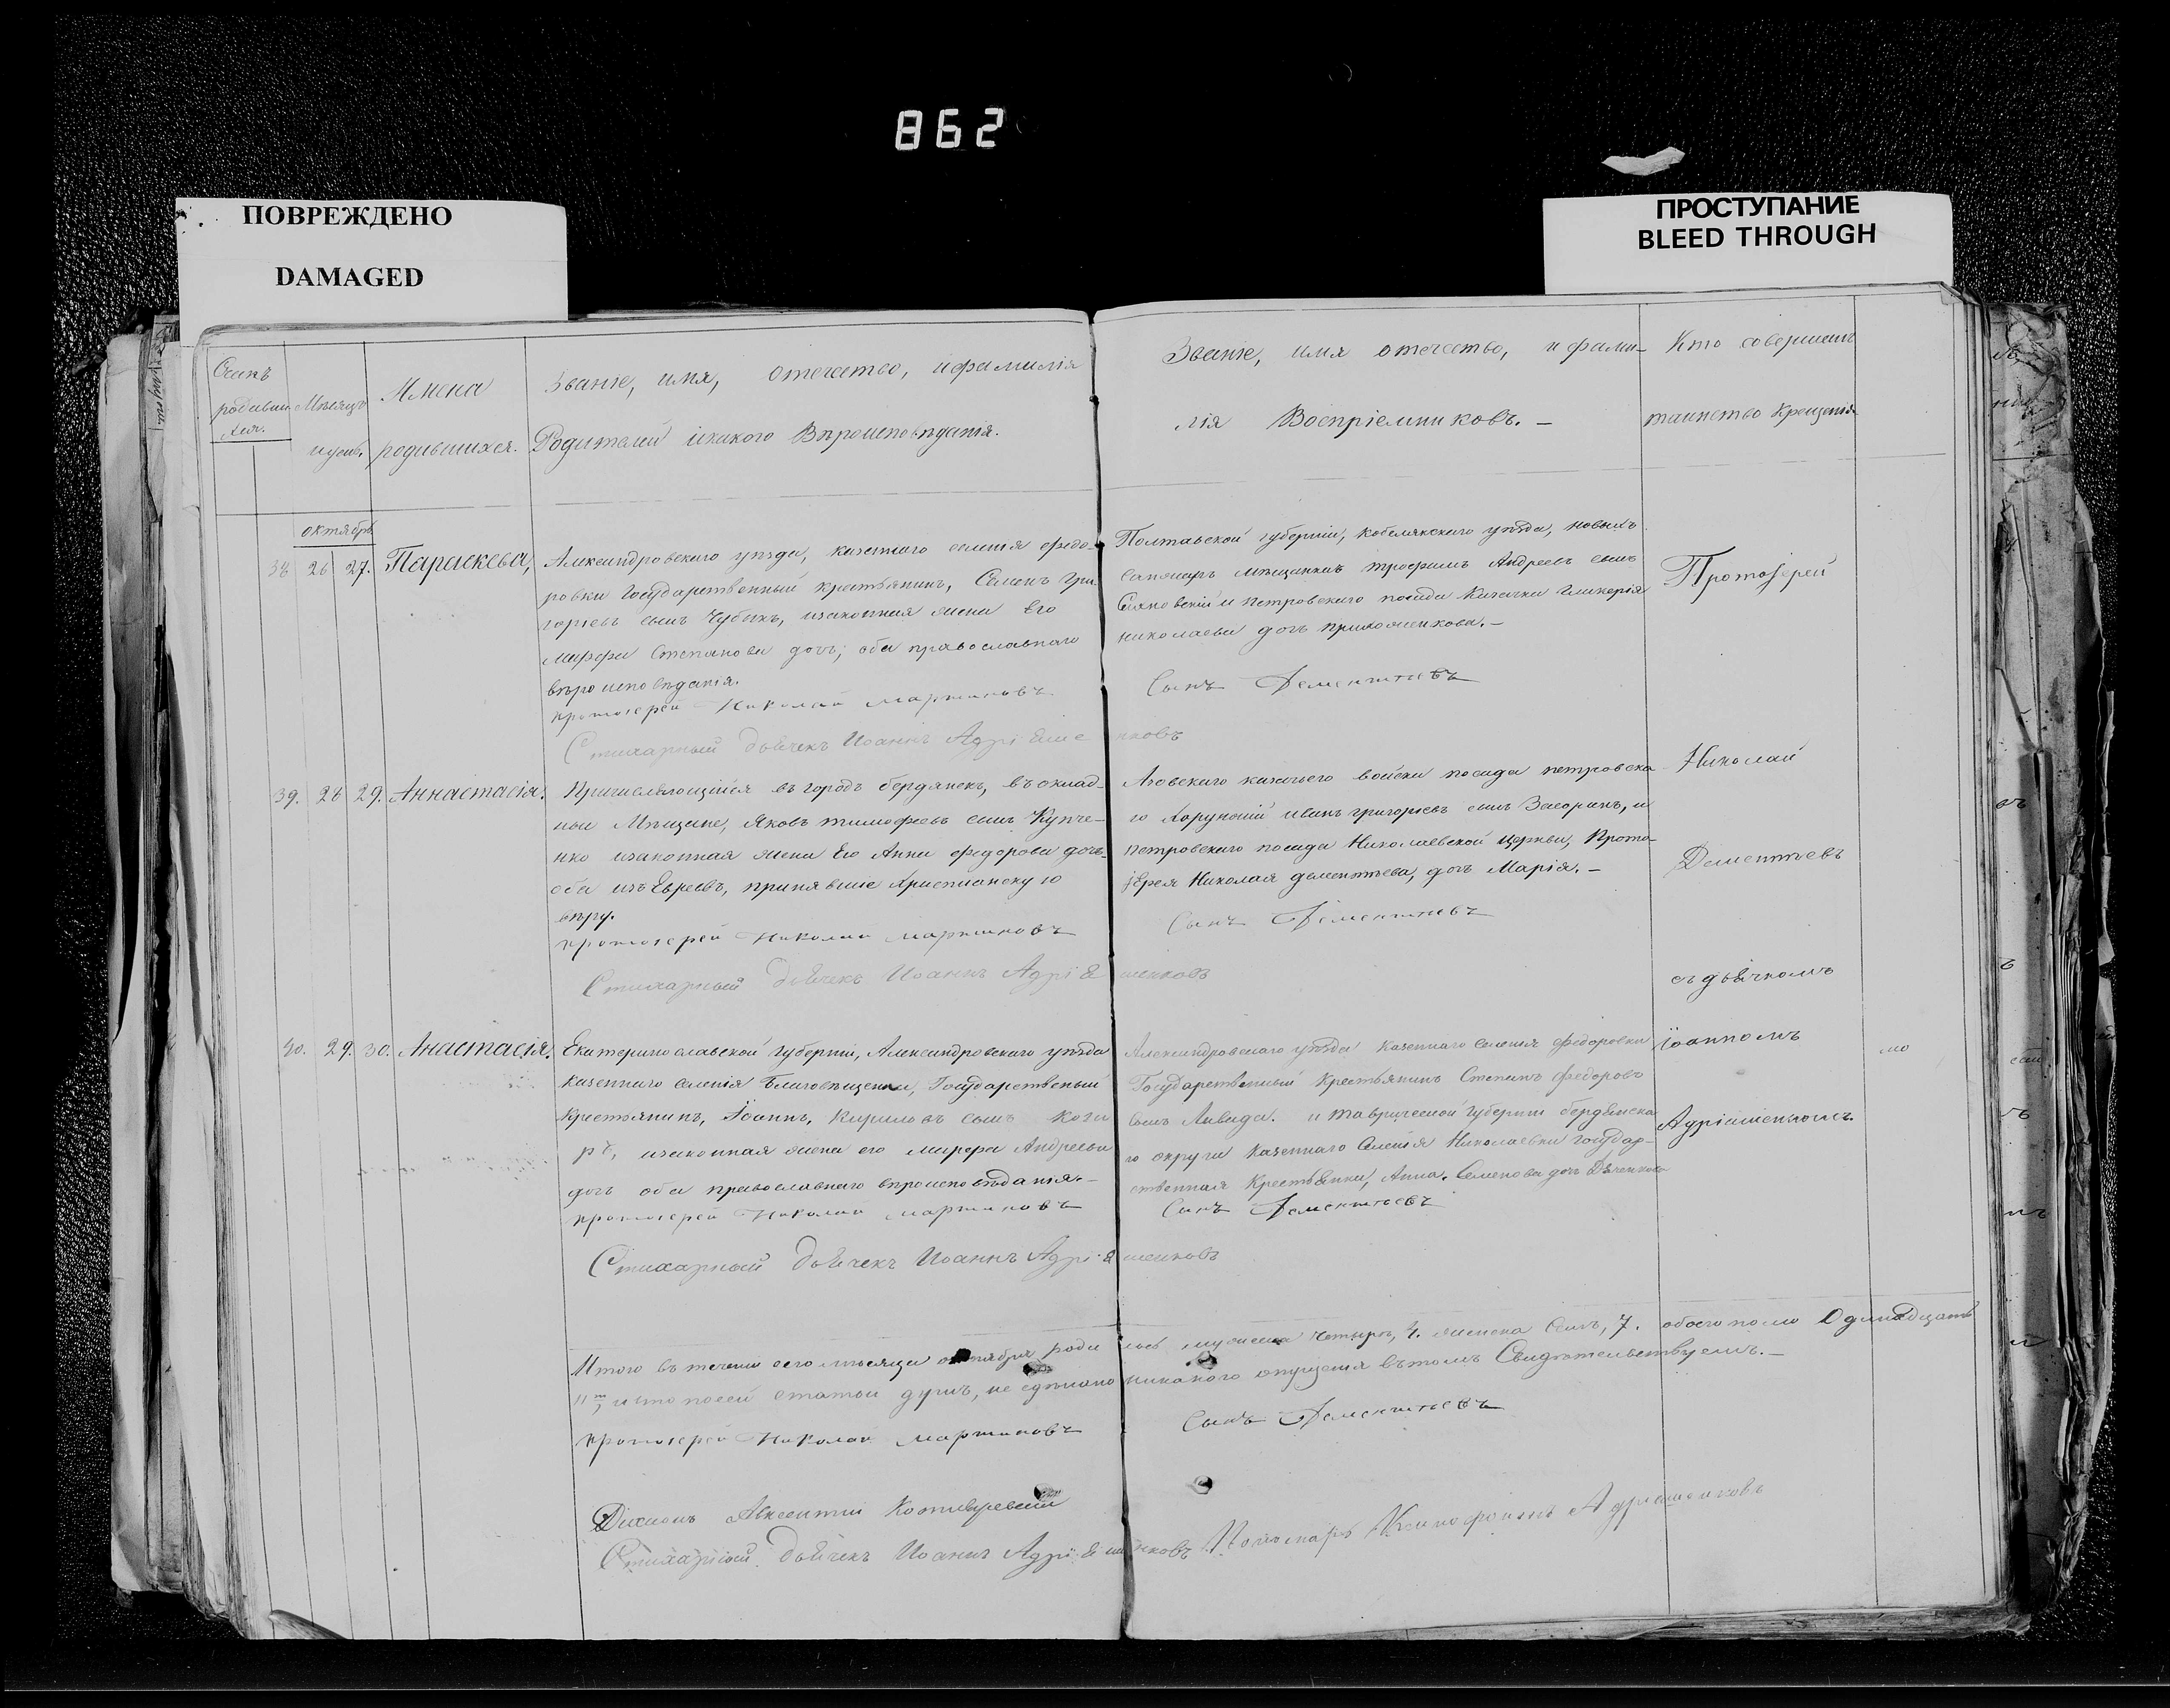 862
ПОВРЕЖДЕНО
DAMAGED
ПРОСТУПАНИЕ
BLEED THROUGH
Мѣсяцъ
Имена
родившихся.
Званіе, имя, отечество, ифамилія
Родителей икакого Вѣроисповѣданія.
Званіе, имя отечество, и фами-
лія Воспріемниковъ. -
Кто совершалъ
таинство Крещенія
октябрь
38 26 27. Параскева,
Александровскаго уѣзда, казеннаго селенія федо-
ровки Государственный крестьянинъ, Семенъ Гри-
горіевъ сынъ Чубъ изаконная жена Его
Марфа Степанова дочь; оба православнаго
вѣроисповѣданія.
протоіерей Николай Мартиновъ
Стихарный дьячекъ Иоаннъ
Полтавской губерніи, Кобелякскаго уѣзда, новыхъ
мѣщанинъ трофимъ Андреевъ сынъ
и петровскаго посада Казачка Гликерія
николаева дочь
Сынъ Дементіевъ
Протоіерей
39. 28 29. Аннастасія.
Причисляющійся въ городъ бердянскъ, въ оклад-
ные Мѣщане, Яковъ тимофеевъ сынъ Купче-
нко изаконная жена Его Анна федорова дочь-
оба изъ Евреевъ, принявшіе Христіанскую
вѣру.
протоіерей Николай Мартиновъ
Стихарный дьячекъ Иоаннъ
Азовскаго казачьего войска посада петровска-
го Хорунжій иванъ григоріевъ сынъ Засоринъ, и
петровскаго посада Николаевской церкви, Прото-
іерея Николая дементьева, дочь Марія. -
Сынъ Дементіевъ
Николай
Дементьевъ
съ дьячкомъ
40. 29. 30. Анастасія.
Екатеринославской губерніи, Александровскаго уѣзда
казеннаго селенія Благовѣщенки, Государственый
Крестьянинъ, Іоаннъ, Кириловъ сынъ
изаконная жена его марфа Андреева
дочь оба православнаго вѣроисповѣданія.-
протоіерей Николай Мартиновъ
Стихарный дьячекъ Иоаннъ
Александровскаго уѣзда казеннаго селенія федоровки
Государственный крестьянинъ Степанъ федоровъ
сынъ и таврической губерніи бердянска-
го округа казеннаго Селенія Николаевки государ-
ственная Крестьянка, Анна, Семенова дочь
Сынъ Дементіевъ
іоанномъ
Итого въ теченіи сего мѣсяца октября роди лось мужеска четыре, 4. женска семь, 7. обоего пола Одинадцать
11, и что посей статьи душъ, не сдѣлано никакого опущенія въ томъ Свидѣтельствуемъ. -
протоіерей Николай Мартиновъ
Сынъ Дементіевъ
Діаконъ Авксентій
Стихарный дьячекъ Иоаннъ
Пономарь Ксенофонтъ